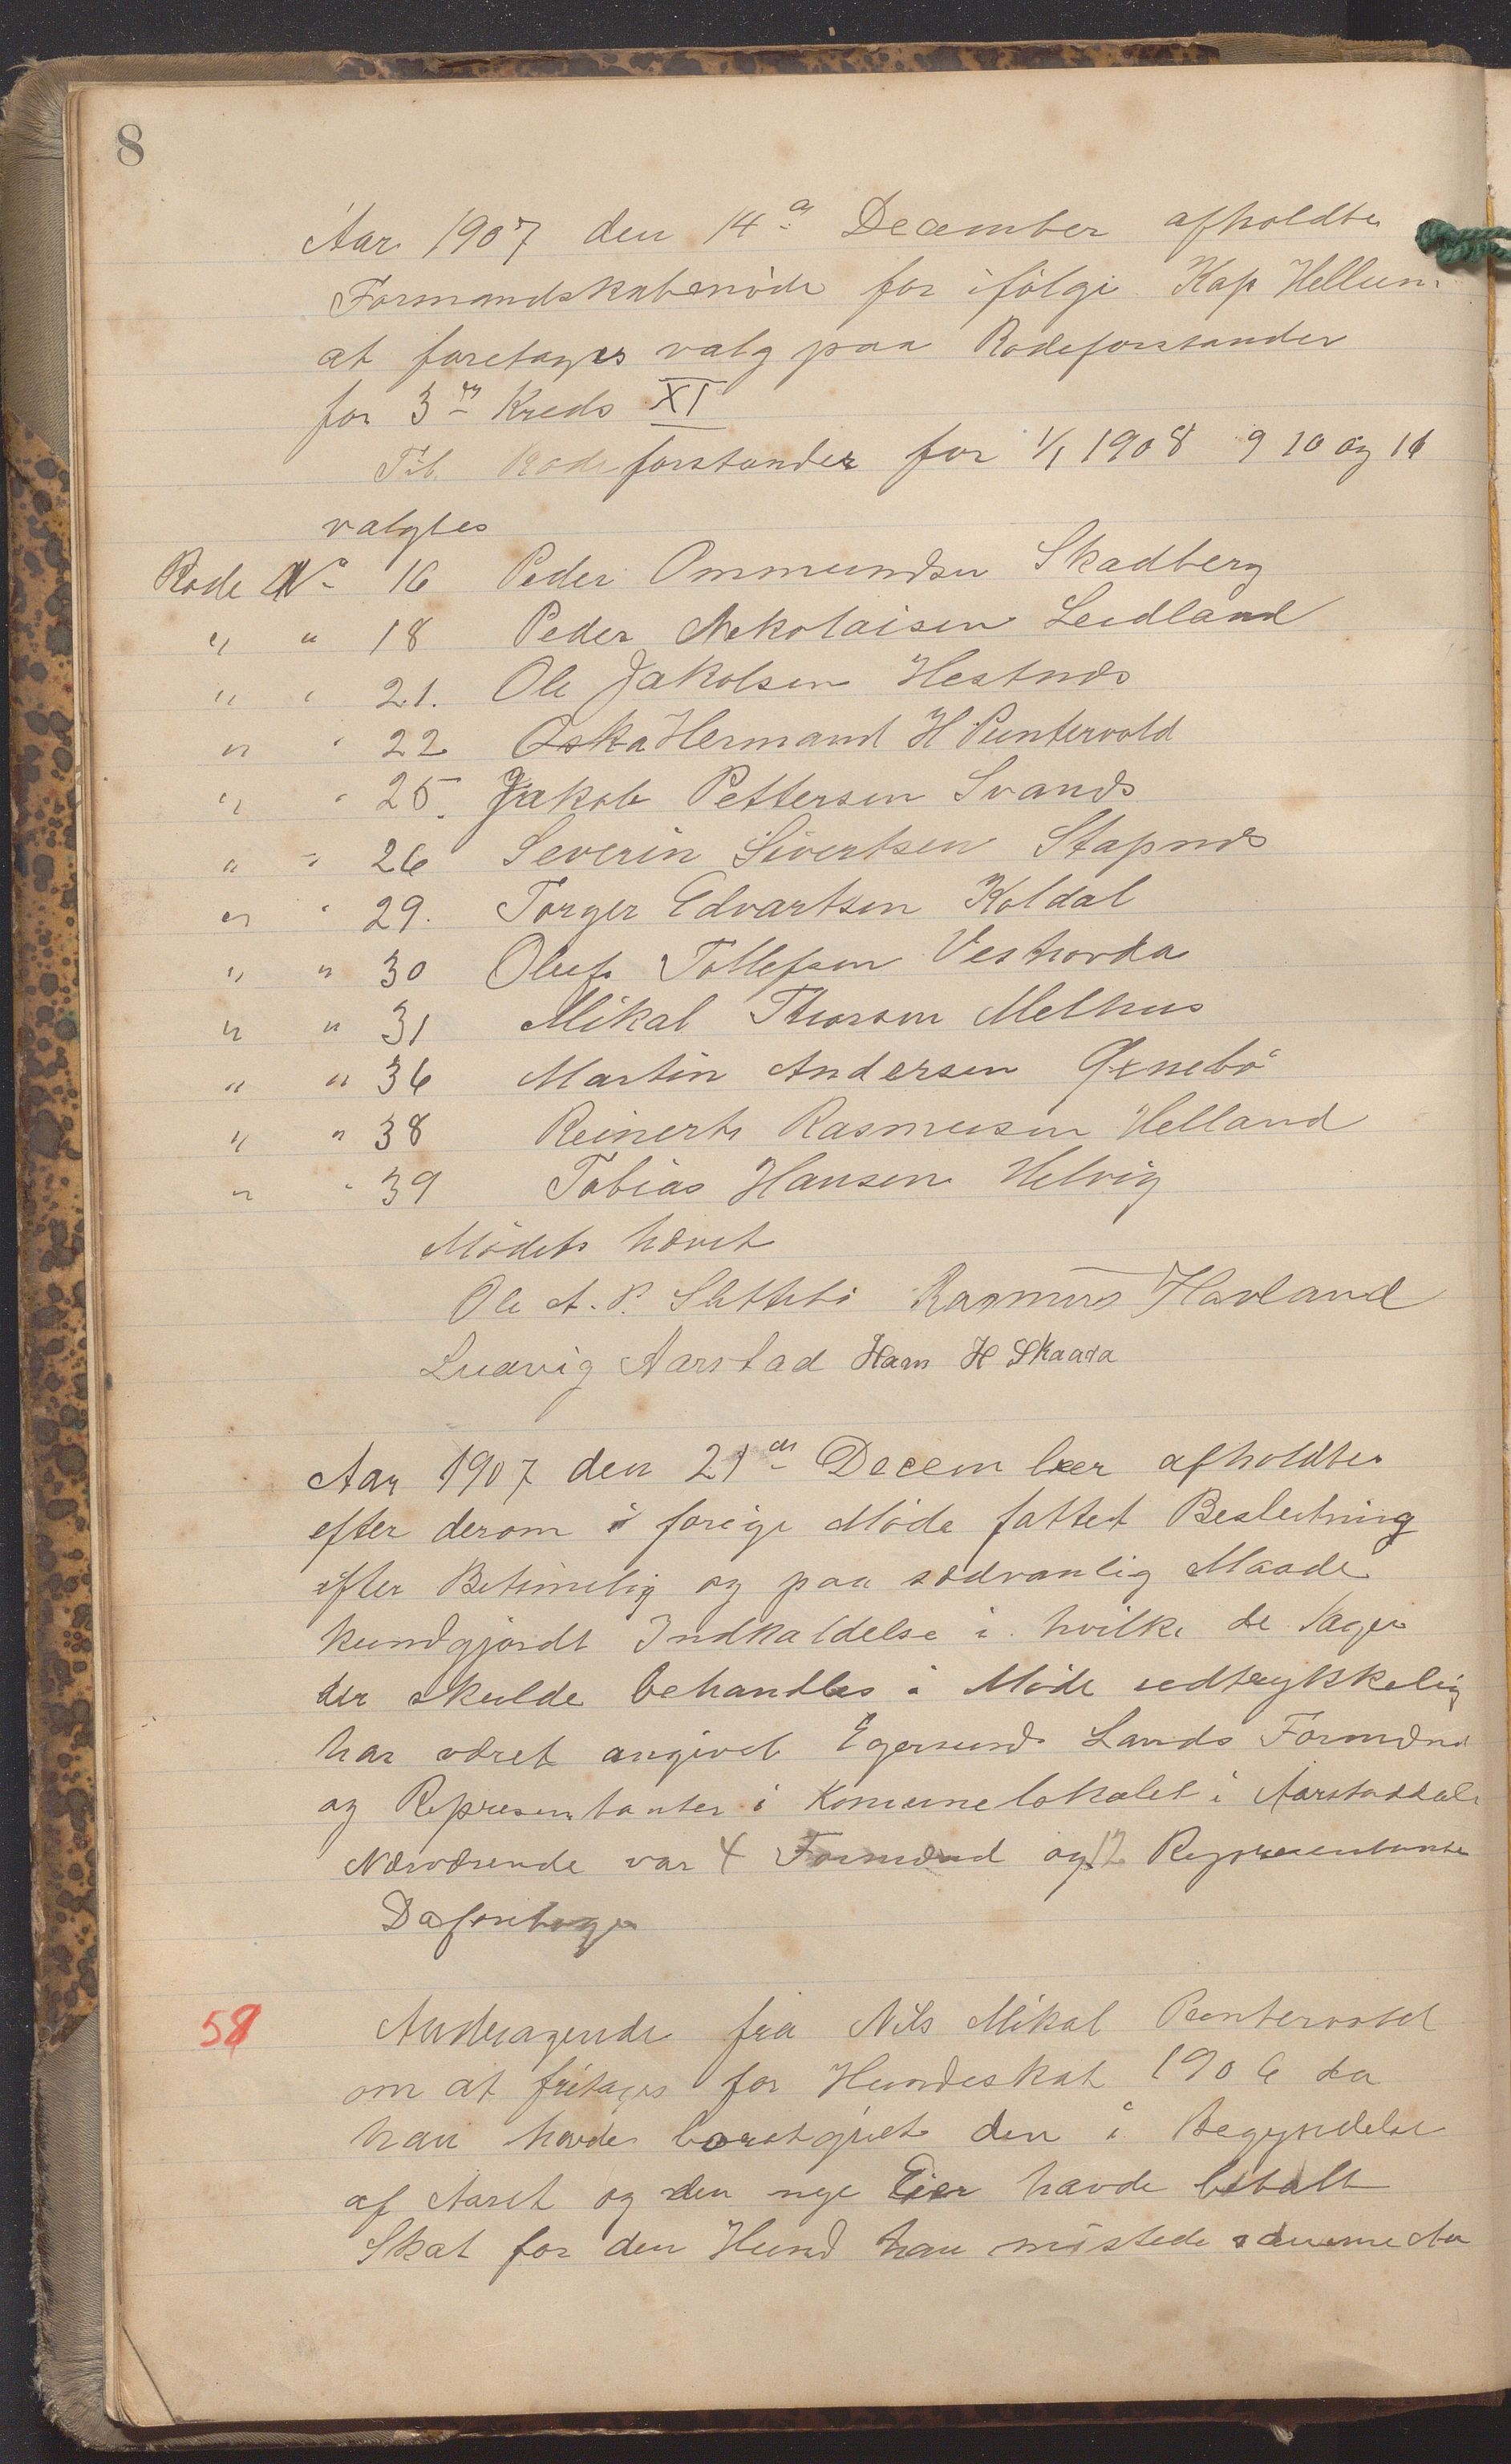 8
Aar 1907 den 14de December afholdtes
Formandskabsmöde for ifölge Kap Hellum
at foretages valg paa Rodeforstander
for 3die Kreds XI
Til Rodeforstander for 1/1 1908 9 10 og 11
valgtes
Rode No 16 Peder Ommundsen Skadberg
" " 18 Peder Nekolaisen Leidland
" " 21. Ole Jakobsen Hestnæs
" " 22 Oska Hermand H Puntervold
" " 25. Jakob Pettersen Svanæs
" " 26 Severin Sivertsen Stapnæs
" " 29. Torger Edvartsen Koldal
" " 30 Oluf Tollefsen Vestvorda
" " 31 Mikal Thorsen Melhus
" " 36 Martin Andersen Grønebö
" " 38 Reinert Rasmussen Helland
" " 39 Tobias Hansen Helvig
Mödet hævet
Ole A. P. Slettebö Rasmus Havland
Ludvig Aarstad Hans H Skaara
Aar 1907 den 21de December afholdtes
efter derom i forige Möde fattet Beslutning
efter Betimelig og paa sædvanlig Maade
kundgjordt Indkaldelse i hvilke de Sager
der skulde behandles i Möde udtrykkelig
har været angivet Egersunds Lands Formænd
og Representanter i Komunelokalet i Aarstaddal
Nærværende var 4 Formænd og 12 Representanter
Da foretoges
58
Andragende fra Nils Mikal Puntervold
om at fritages for Hundeskat 1906 da
han havde borstgivet den i Begyndelse
af Aaret og den nye Eier havde betalt
Skat for den Hund han mistede denne Aar